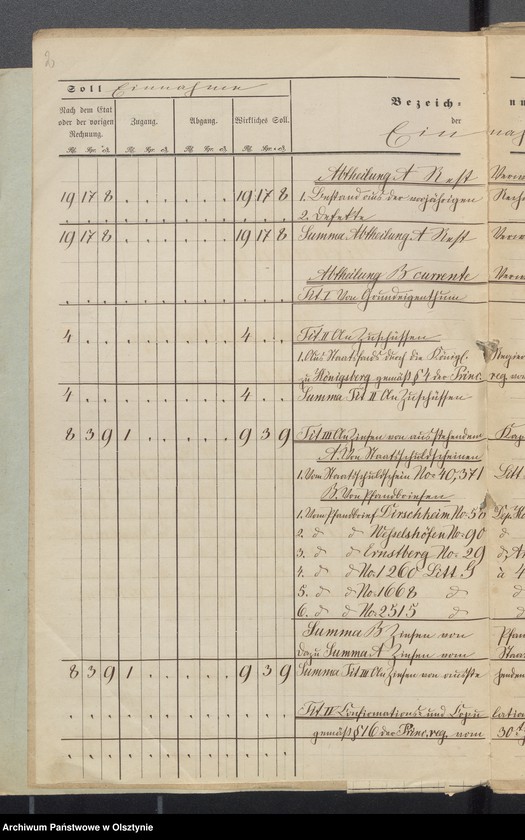 2
Soll Einnahme
Bezeich=
Nach dem Etat
oder der vorigen
Rechnung.
Zugang.
Abgang.
Wirkliches Soll.
der
Einnah
Abtheilung A Rest
19 17 8 . . . . . . 19 17 8 1. Bestand aus der vorjährigen
2. Defekte
19 17 8 . . . . . . 19 17 8 Summa Abtheilung A Rest
Abtheilung B currente
Tit. I Von Grundeigenthum
4 . . . . . . . . 4 . . Tit II An Zuschüssen
1. Aus Staatsfonds durch die Königl.
zu Königsberg gemäß § 4 der Princ. reg. vom
4 . . . . . . . . 4 . . Summa Tit II An Zuschüssen
8 3 9 1 . . . . . 9 3 9 Tit III An Zinsen von ausstehendem Kap
A. Von Staatsschuldscheinen
1. Vom Staatsschuldschein No: 40,371 Litt
B. Von Pfandbriefen
1. Vom Pfandbrief Dirschkeim No: 56
2. d d Wesselshöfen No: 90 d
3. d d Ernstberg No: 29
4. d d No: 1260 Litt G à 4
5. d d No: 1668 d d
6. d d No: 2315 d d
Summa B Zinsen von Pfan
dazu Summa A Zinsen vom Staat
8 3 9 1 . . . . . 9 3 9 Summa Tit III An Zinsen von ausste handen
Tit IV Confirmations- und Copu lation
gemäß § 16 der Princ. reg. vom 30t
Archiwum Państwowe w Olsztynie